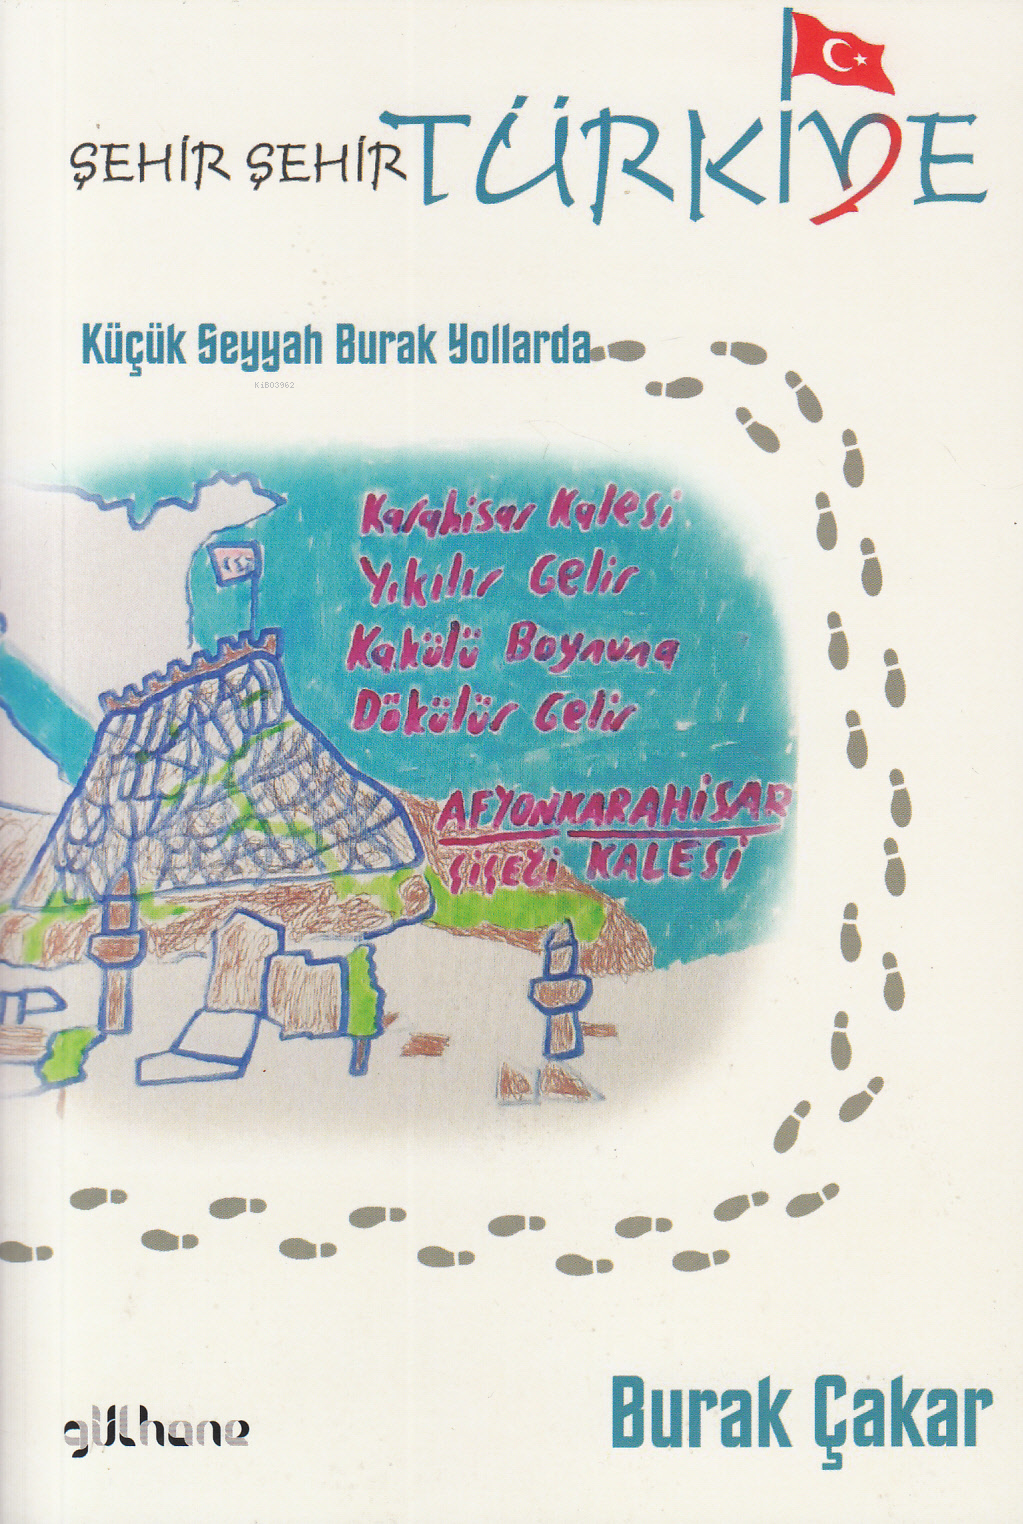 ŞEHİR ŞEHİR TÜRKİYE
Küçük Seyyah Burak Yollarda
KiB03962
Karahisar Kalesi
Yıkılır Gelir
Kakülü Boynuna
Dökülür Gelir
AFYONKARAHİSAR
KALESİ
Burak Çakar
gülhane